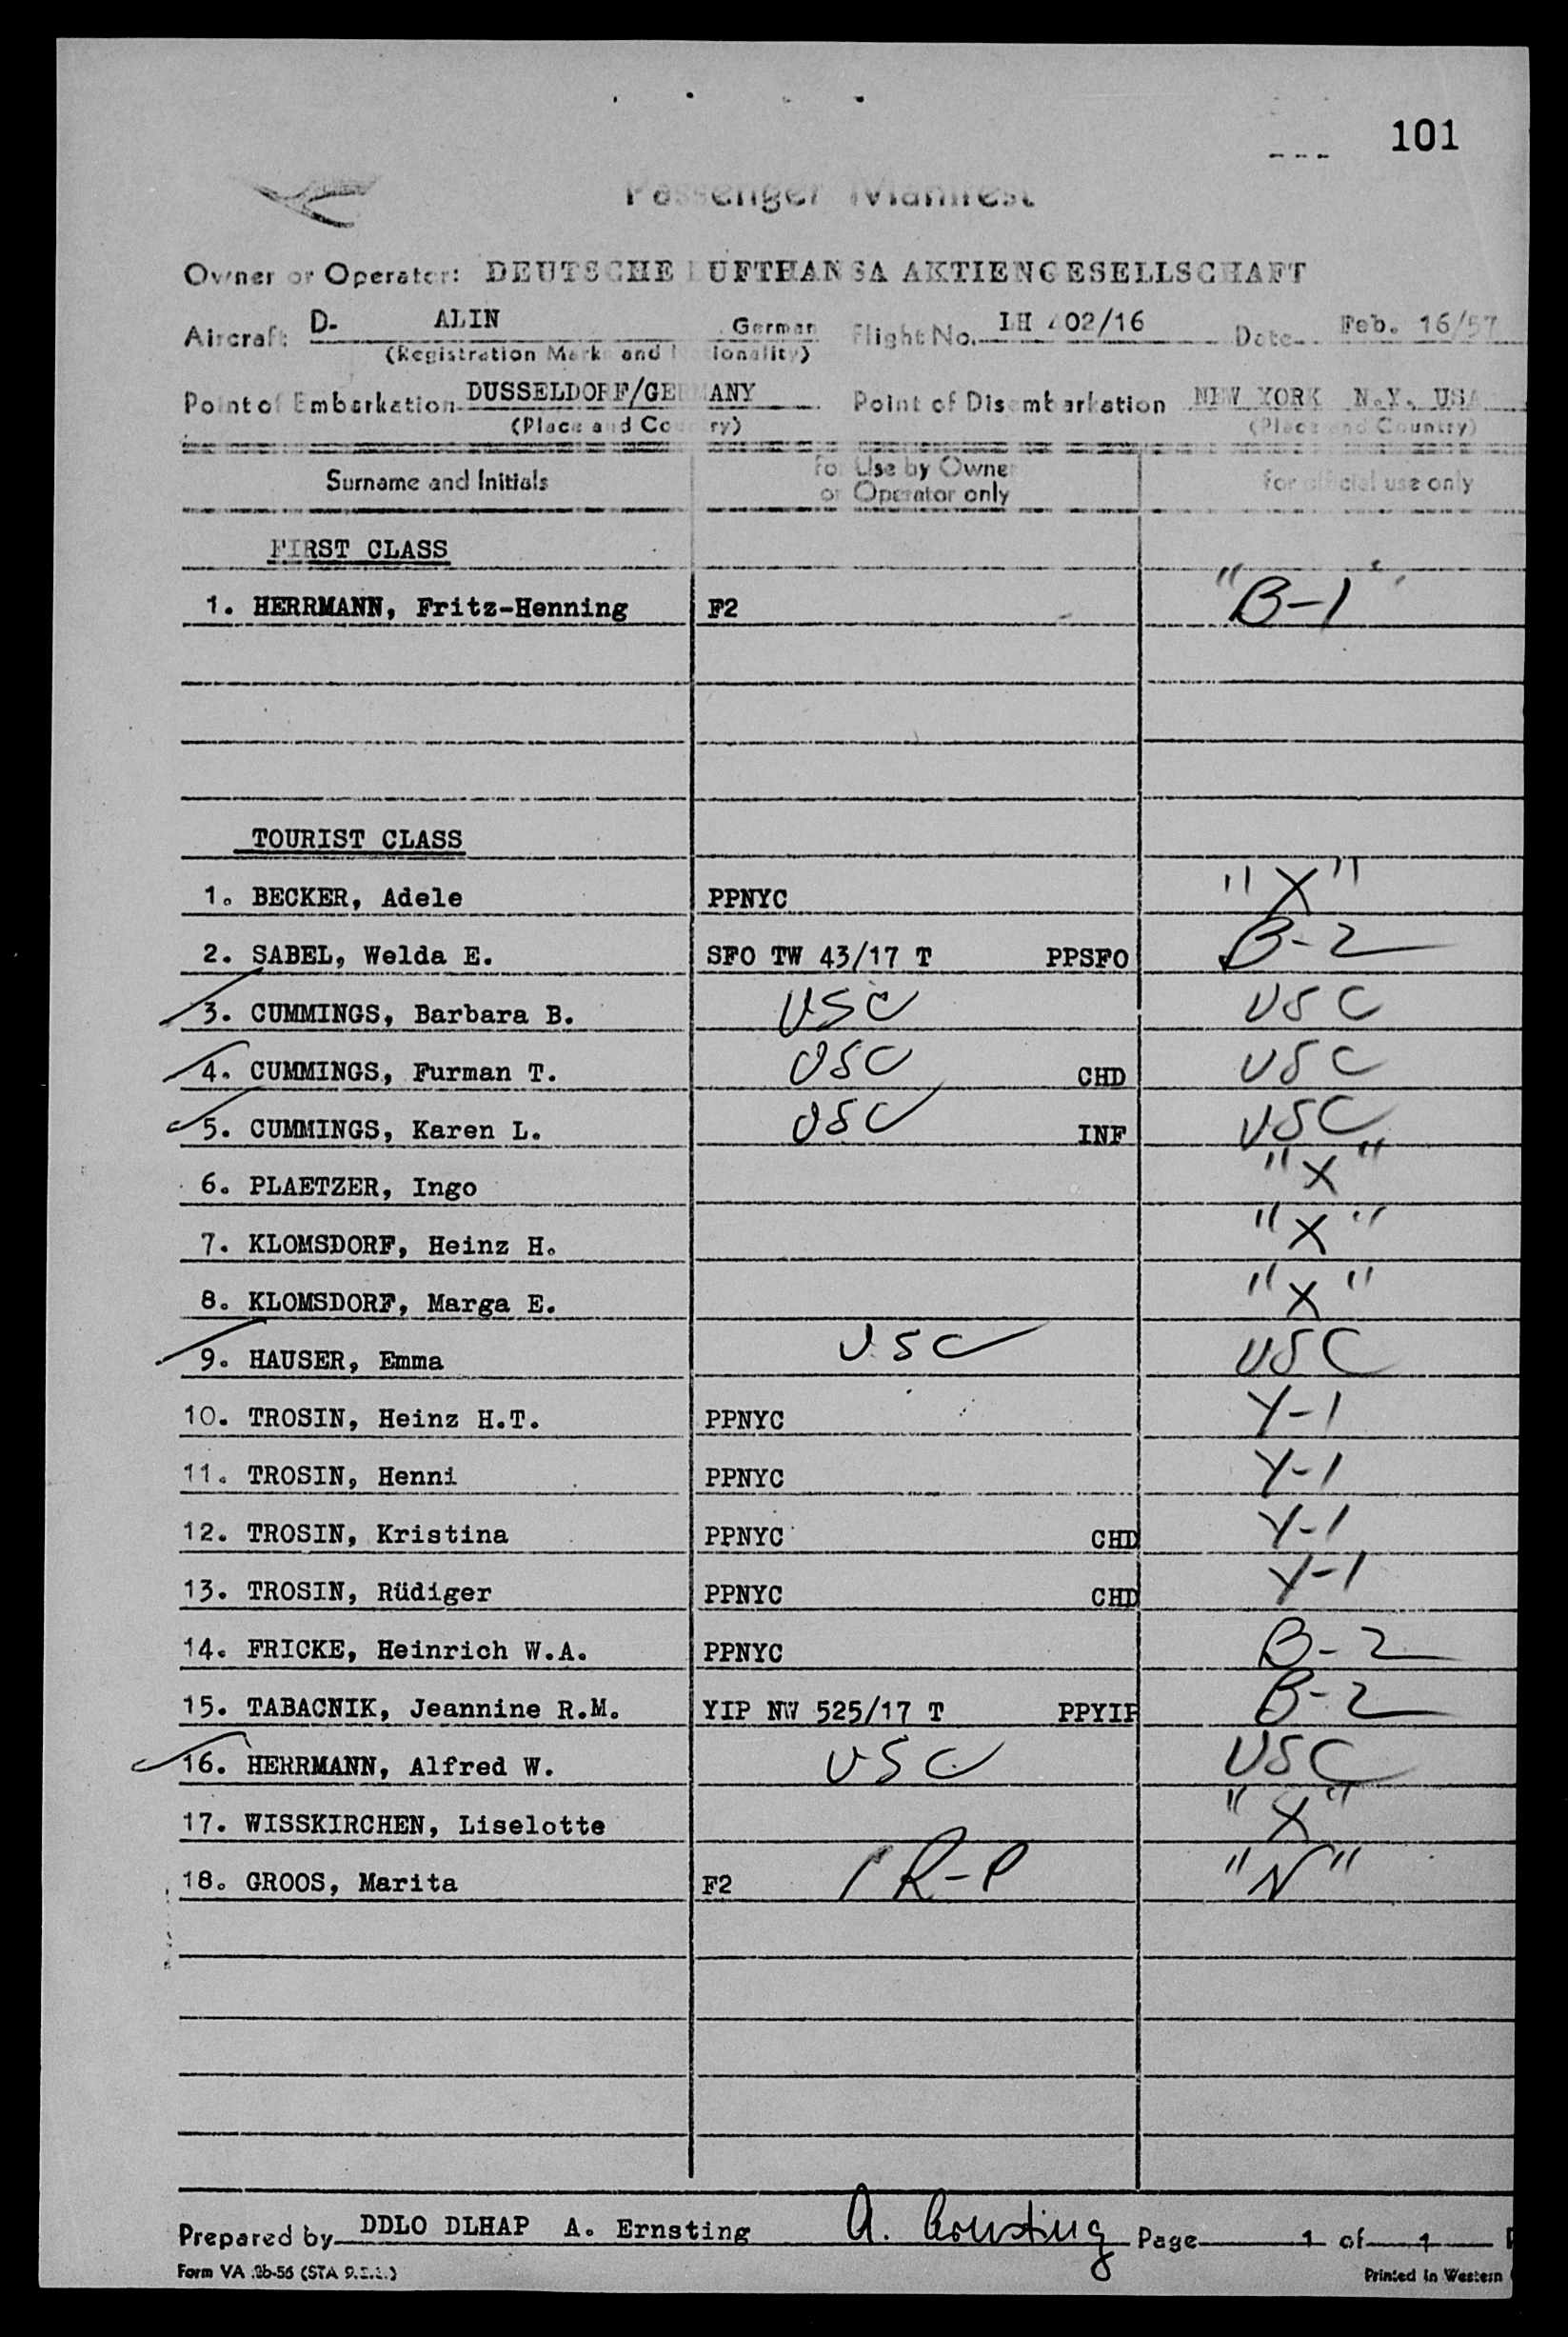 101
Passenger Manifest
Owner or Operator: DEUTSCHE LUFTHANSA AKTIENGESELLSCHAFT
Aircraft D- ALIN German Flight No. LH 402/16 Date Feb. 16/57
(Registration Marks and Nationality)
Point of Embarkation DUSSELDORF/GERMANY Point of Disembarkation NEW YORK N.Y. USA
(Place and Country) (Place and Country)
Surname and Initials For Use by Owner or Operator only For official use only
FIRST CLASS
1. HERRMANN, Fritz-Henning F2 "B-1"
TOURIST CLASS
1. BECKER, Adele PPNYC "X"
2. SABEL, Welda E. SFO TW 43/17 T PPSFO B-2
3. CUMMINGS, Barbara B. USC USC
4. CUMMINGS, Furman T. USC CHD USC
5. CUMMINGS, Karen L. USC INF USC
6. PLAETZER, Ingo "X"
7. KLOMSDORF, Heinz H. "X"
8. KLOMSDORF, Marga E. "X"
9. HAUSER, Emma USC USC
10. TROSIN, Heinz H.T. PPNYC Y-1
11. TROSIN, Henni PPNYC Y-1
12. TROSIN, Kristina PPNYC CHD Y-1
13. TROSIN, Rüdiger PPNYC CHD Y-1
14. FRICKE, Heinrich W.A. PPNYC B-2
15. TABACNIK, Jeannine R.M. YIP NW 525/17 T PPYIP B-2
16. HERRMANN, Alfred W. USC USC
17. WISSKIRCHEN, Liselotte "X"
18. GROOS, Marita F2 1 R-P "N"
Prepared by DDLO DLHAP A. Ernsting A. Ernsting Page 1 of 1
Form VA 2b-56 Printed in Western